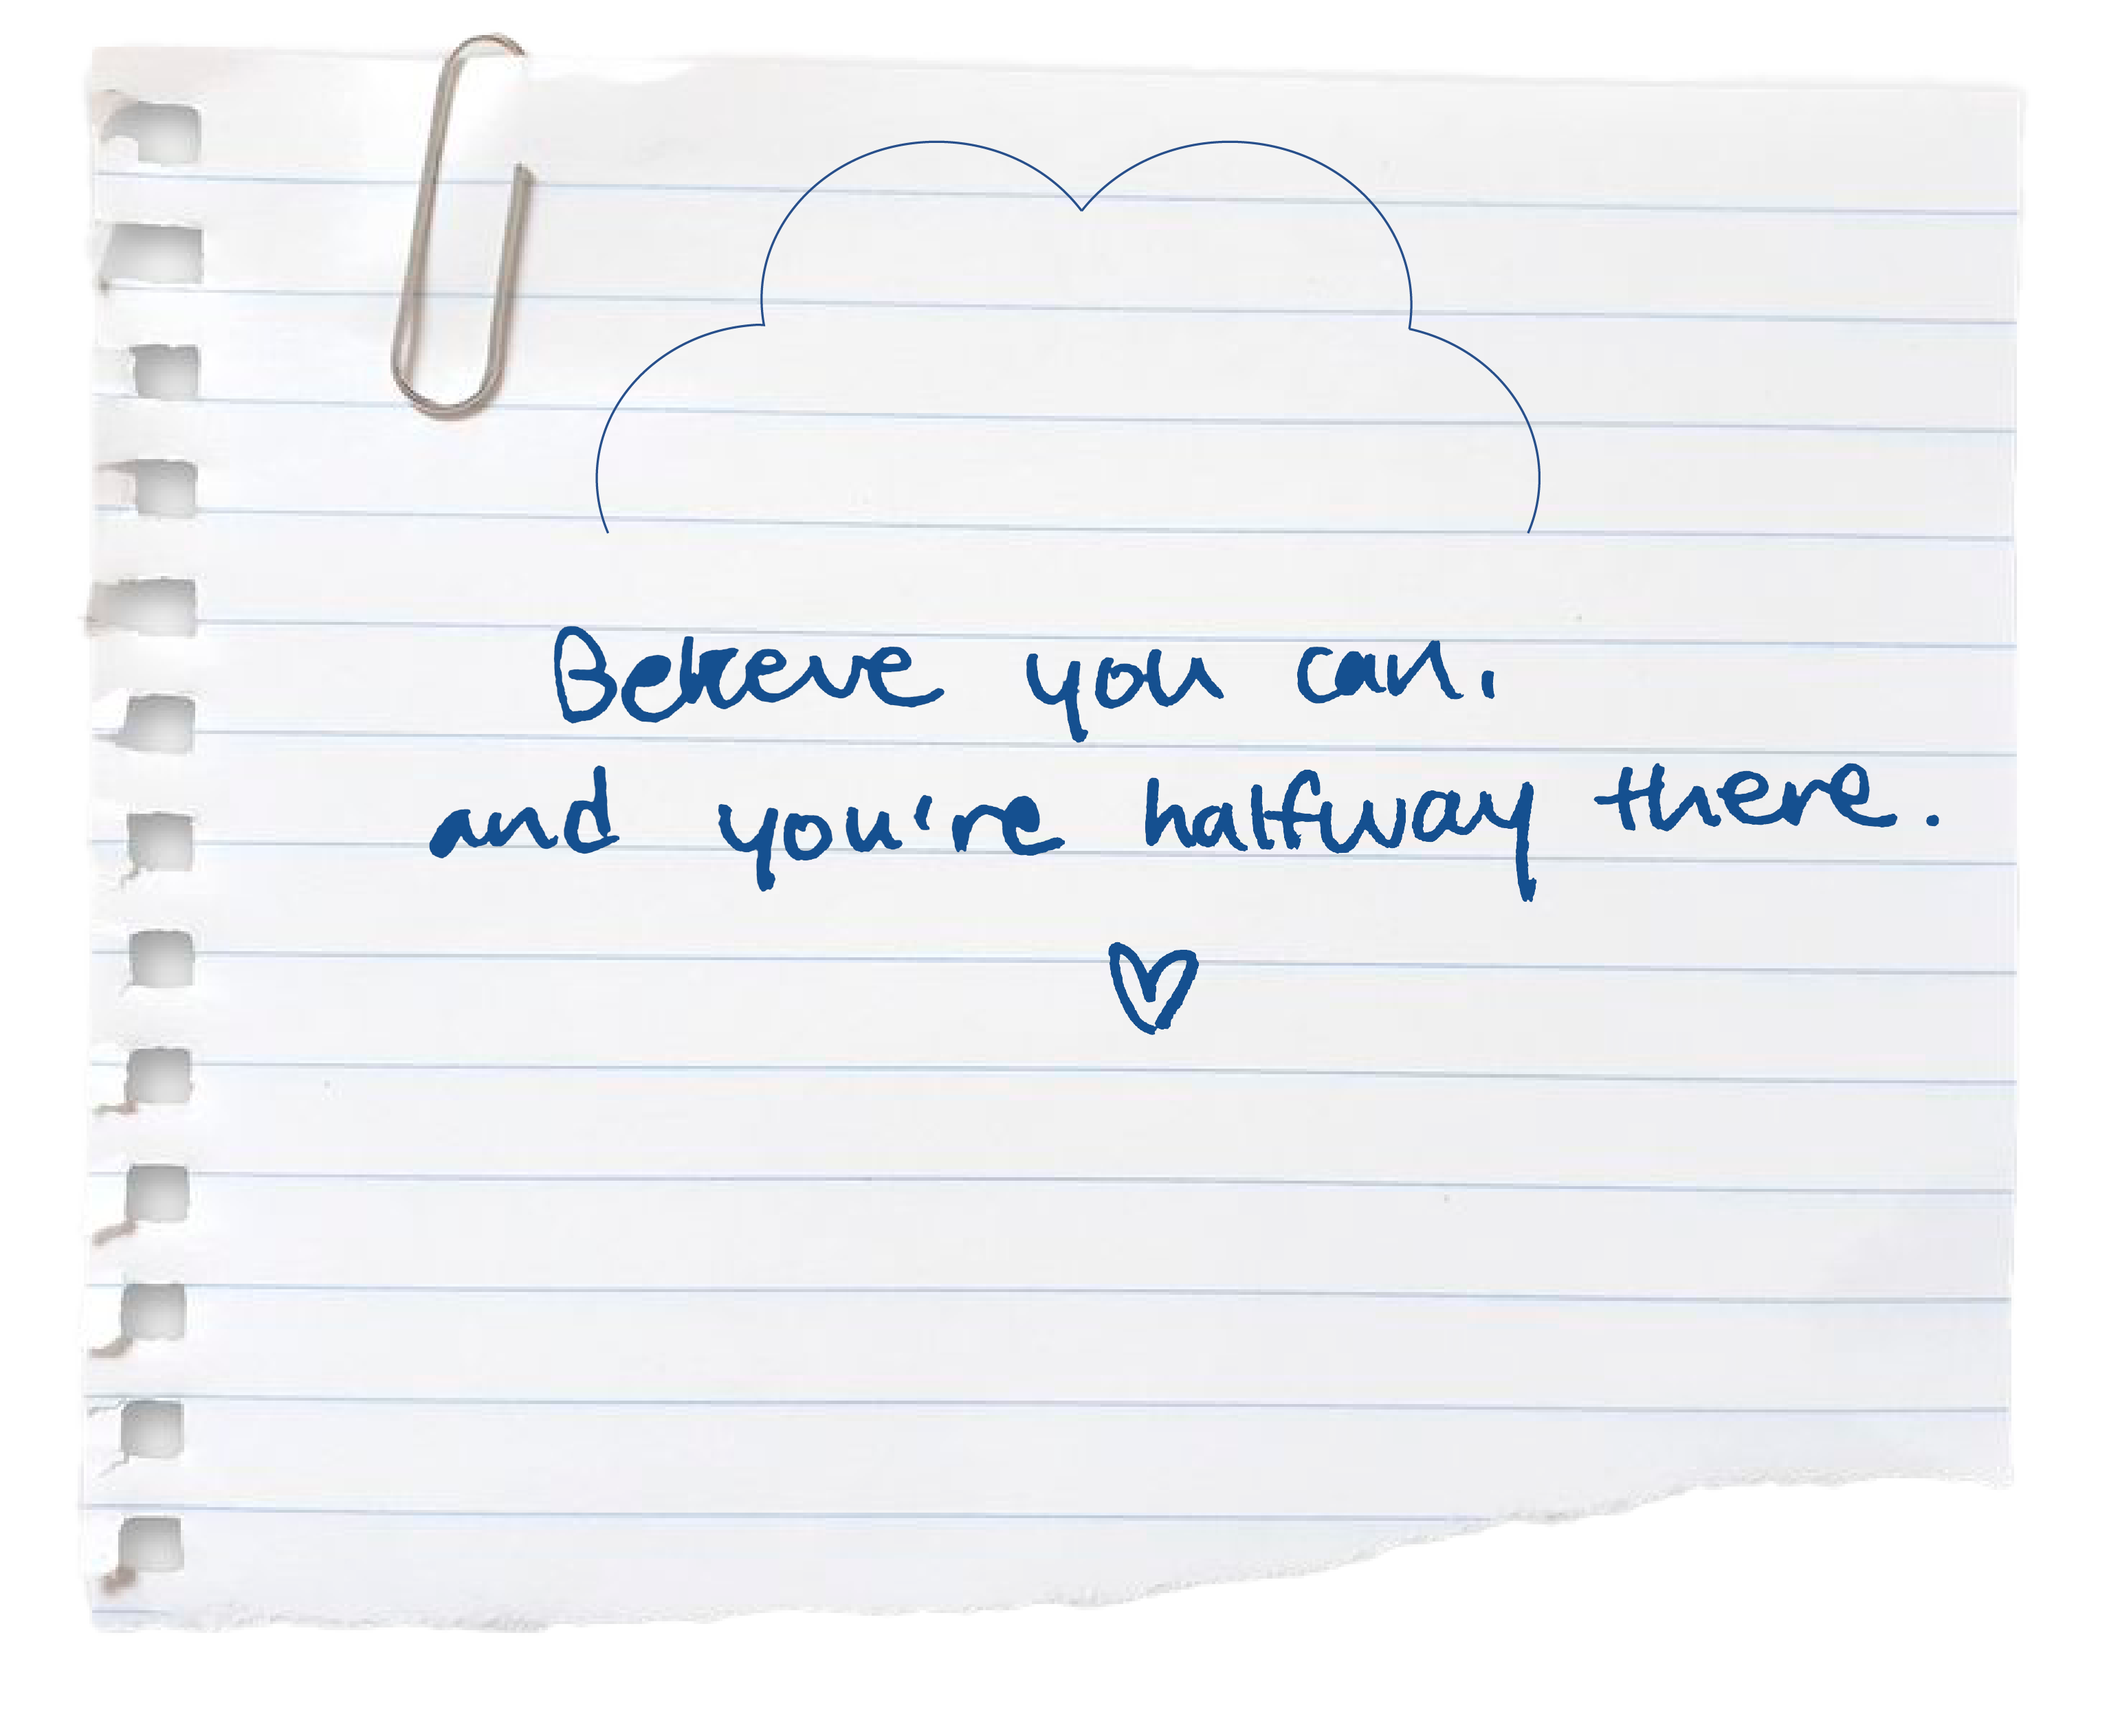 Believe you can.
and you're halfway there.